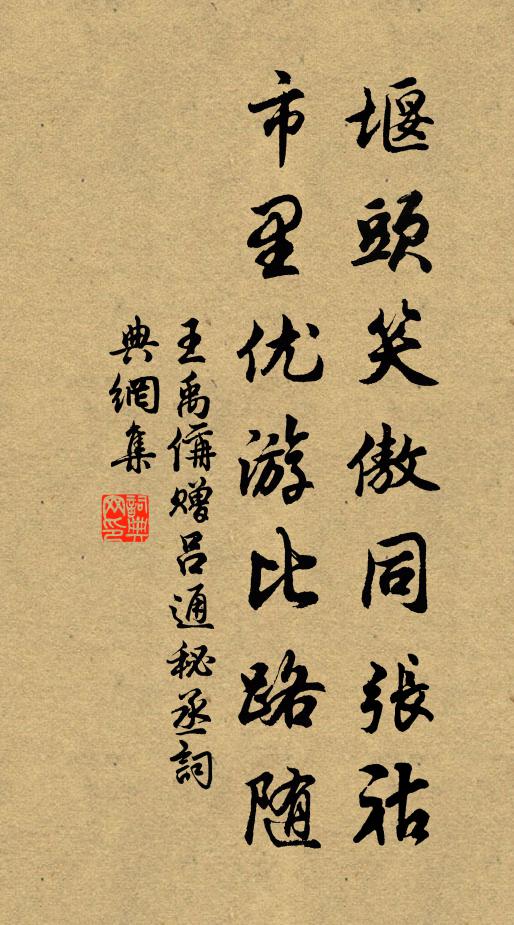 堰頭笑傲同張祜
市里优游比路随
王禹偁赠吕通秘丞詞
典網集
詞典网印